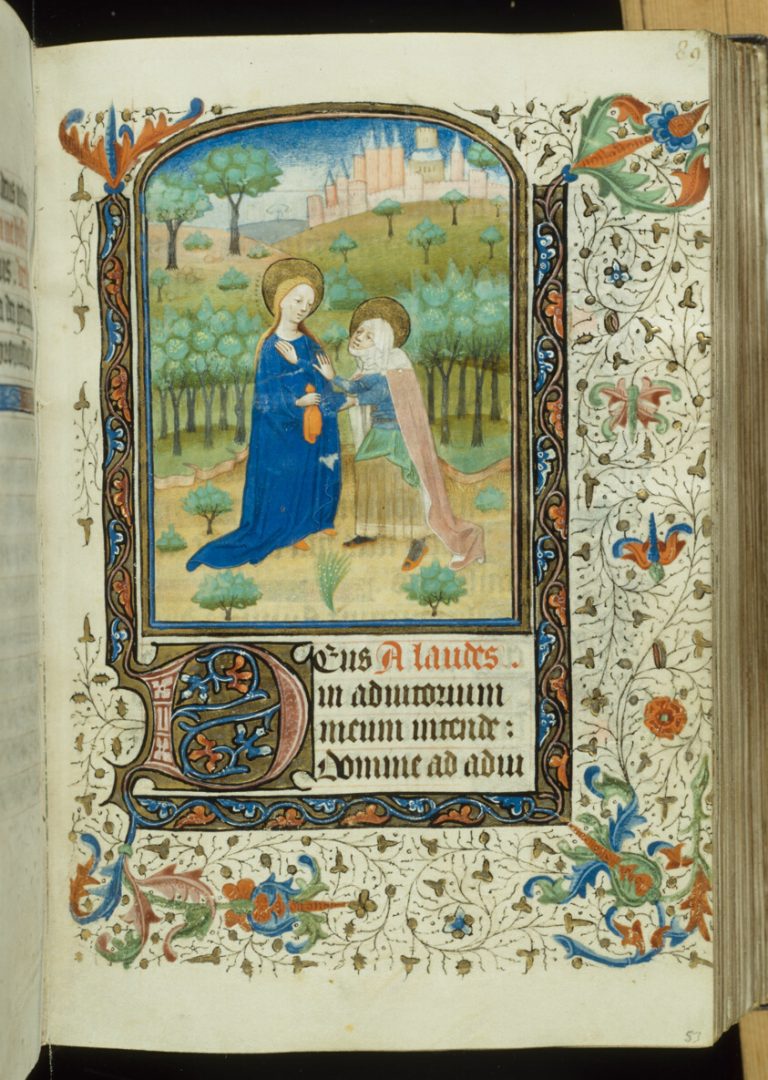 89
Deus A laudes.
in adiutorium
meum intende:
Domine ad adiu
53